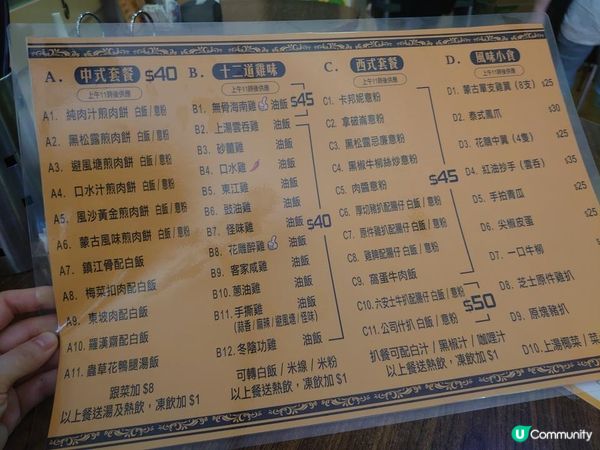 A. 中式套餐 $40
上午11時後供應
A1. 純肉汁煎肉餅 白飯/意粉
A2. 黑松露煎肉餅 白飯/意粉
A3. 避風塘煎肉餅 白飯/意粉
A4. 口水汁煎肉餅 白飯/意粉
A5. 風沙黃金煎肉餅 白飯/意粉
A6. 蒙古風味煎肉餅 白飯/意粉
A7. 鎮江骨配白飯
A8. 梅菜扣肉配白飯
A9. 東坡肉配白飯
A10. 羅漢齋配白飯
A11. 蟲草花鴨腿湯飯
跟菜加 $8
以上餐送湯及熱飲，凍飲加 $1
B. 十二道雞味
上午11時後供應
B1. 無骨海南雞 油飯 $45
B2. 上湯雲吞雞 油飯
B3. 砂薑雞 油飯
B4. 口水雞 油飯
B5. 東江雞 油飯
B6. 豉油雞 油飯
B7. 怪味雞 油飯 $40
B8. 花雕醉雞 油飯
B9. 客家咸雞 油飯
B10. 蔥油雞 油飯
B11. 手撕雞 油飯
(蒜香/麻辣/避風塘/怪味)
B12. 冬陰功雞 油飯
可轉白飯/米線/米粉
以上餐送熱飲，凍飲加 $1
C. 西式套餐
上午11時後供應
C1. 卡邦妮意粉
C2. 拿破崙意粉
C3. 黑松露忌廉意粉
C4. 黑椒牛柳絲炒意粉
C5. 肉醬意粉 $45
C6. 厚切豬扒配腸仔 白飯/意粉
C7. 原件雞扒配腸仔 白飯/意粉
C8. 雞髀配腸仔 白飯/意粉
C9. 窩蛋牛肉飯
C10. 六安士牛扒配腸仔 白飯/意粉 $50
C11. 公司什扒 白飯/意粉
扒餐可配白汁/黑椒汁/咖喱汁
以上餐送熱飲，凍飲加 $1
D. 風味小食
上午11時後供應
D1. 蒙古單支雞翼 (8支) $25
D2. 泰式鳳爪 $30
D3. 花雕中翼 (4隻) $25
D4. 紅油抄手 (雲吞) $35
D5. 手拍青瓜 $25
D6. 尖椒皮蛋
D7. 一口牛柳
D8. 芝士原件雞扒
D9. 原塊豬扒
D10. 上湯椰菜/菜
U Community